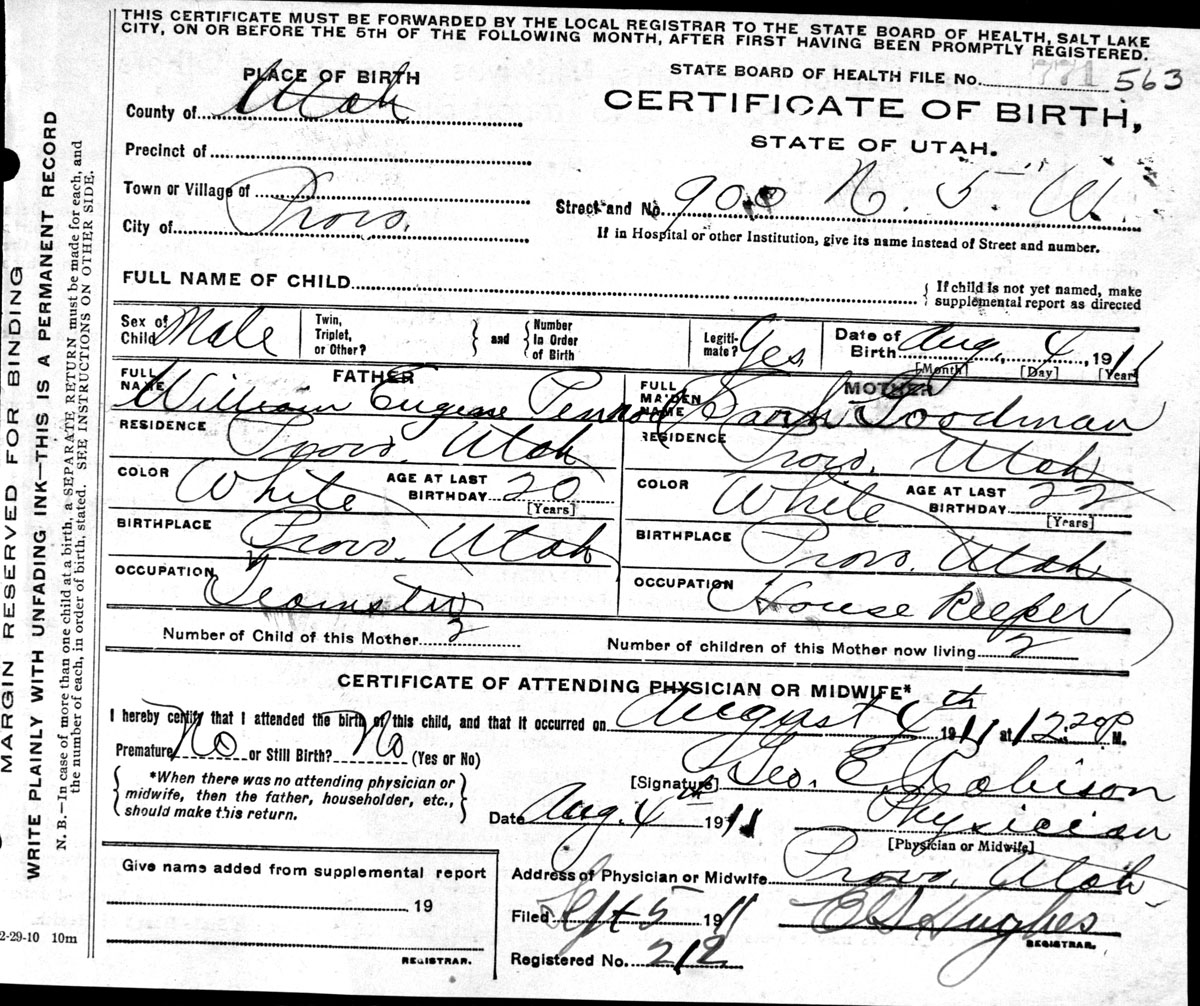 THIS CERTIFICATE MUST BE FORWARDED BY THE LOCAL REGISTRAR TO THE STATE BOARD OF HEALTH, SALT LAKE
CITY, ON OR BEFORE THE 5TH OF THE FOLLOWING MONTH, AFTER FIRST HAVING BEEN PROMPTLY REGISTERED.
PLACE OF BIRTH
STATE BOARD OF HEALTH FILE NO. 771 563
County of Utah
CERTIFICATE OF BIRTH,
STATE OF UTAH.
Precinct of
Town or Village of
Street and No. 900 N. 5" W.
City of Provo.
If in Hospital or other Institution, give its name instead of Street and number.
FULL NAME OF CHILD
If child is not yet named, make
supplemental report as directed
Sex of
Child Male
Twin,
Triplet,
or Other?
and
Number
In Order
of Birth
Legiti-
mate? Yes
Date of
Birth Aug. 4, 1911
[Month] [Day] [Year]
FATHER
FULL
NAME William Eugene
RESIDENCE Provo, Utah
COLOR White AGE AT LAST
BIRTHDAY 20
[Years]
BIRTHPLACE Provo, Utah
OCCUPATION Teamster
MOTHER
FULL
MAIDEN
NAME Goodman
RESIDENCE Provo, Utah
COLOR White AGE AT LAST
BIRTHDAY 22
[Years]
BIRTHPLACE Provo, Utah
OCCUPATION House Keeper
Number of Child of this Mother 2
Number of children of this Mother now living 2
CERTIFICATE OF ATTENDING PHYSICIAN OR MIDWIFE*
I hereby certify that I attended the birth of this child, and that it occurred on August 4th 1911 at 12:20 P M.
Premature No or Still Birth? No (Yes or No)
*When there was no attending physician or
midwife, then the father, householder, etc.,
should make this return.
[Signature] Geo. E. Robison
Date Aug. 4th 1911 Physician
[Physician or Midwife]
Address of Physician or Midwife Provo, Utah
Give name added from supplemental report
19
REGISTRAR.
Filed Sept 5 1911 Hughes
REGISTRAR.
Registered No. 212
MARGIN RESERVED FOR BINDING
WRITE PLAINLY WITH UNFADING INK—THIS IS A PERMANENT RECORD
N. B.—In case of more than one child at a birth, a SEPARATE RETURN must be made for each, and
the number of each, in order of birth, stated. SEE INSTRUCTIONS ON OTHER SIDE.
2-29-10 10m